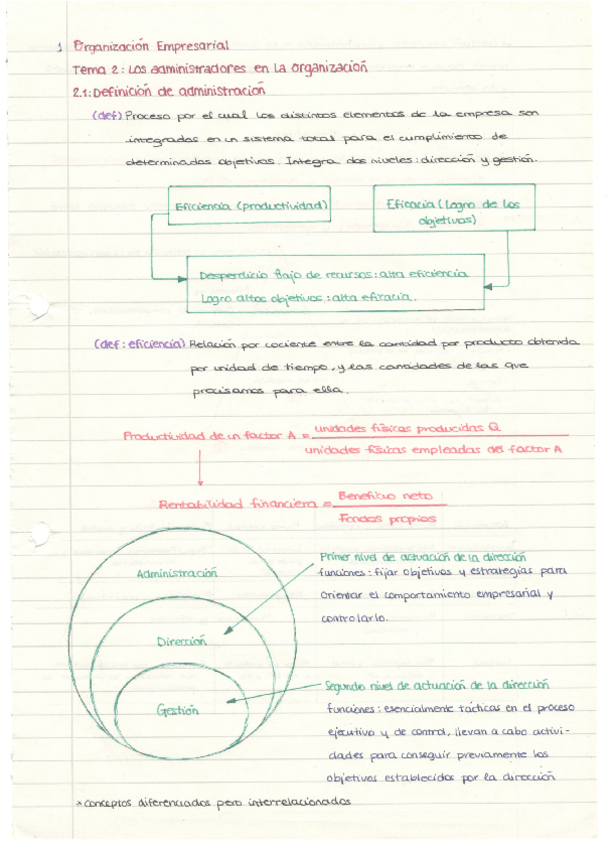 1 Organización Empresarial
Tema 2: Los administradores en la organización
2.1: Definición de administración
(def) Proceso por el cual los distintos elementos de la empresa son
integrados en un sistema total para el cumplimiento de
determinados objetivos. Integra dos niveles: dirección y gestión.
Eficiencia (productividad)
Eficacia (Logro de los
objetivos)
Desperdicio Bajo de recursos: alta eficiencia
Logro altos objetivos: alta eficacia.
(def: eficiencia) Relación por cociente entre la cantidad por producto obtenida
por unidad de tiempo, y las cantidades de las que
precisamos para ella.
Productividad de un factor A = unidades físicas producidas Q
unidades físicas empleadas del factor A
Rentabilidad financiera = Beneficio neto
Fondos propios
Administración
Primer nivel de actuación de la dirección
funciones: fijar objetivos y estrategias para
orientar el comportamiento empresarial y
controlarlo.
Dirección
Segundo nivel de actuación de la dirección
Gestión
funciones: esencialmente tácticas en el proceso
ejecutivo y de control, llevan a cabo activi-
dades para conseguir previamente los
objetivos establecidos por la dirección
*conceptos diferenciados pero interrelacionados